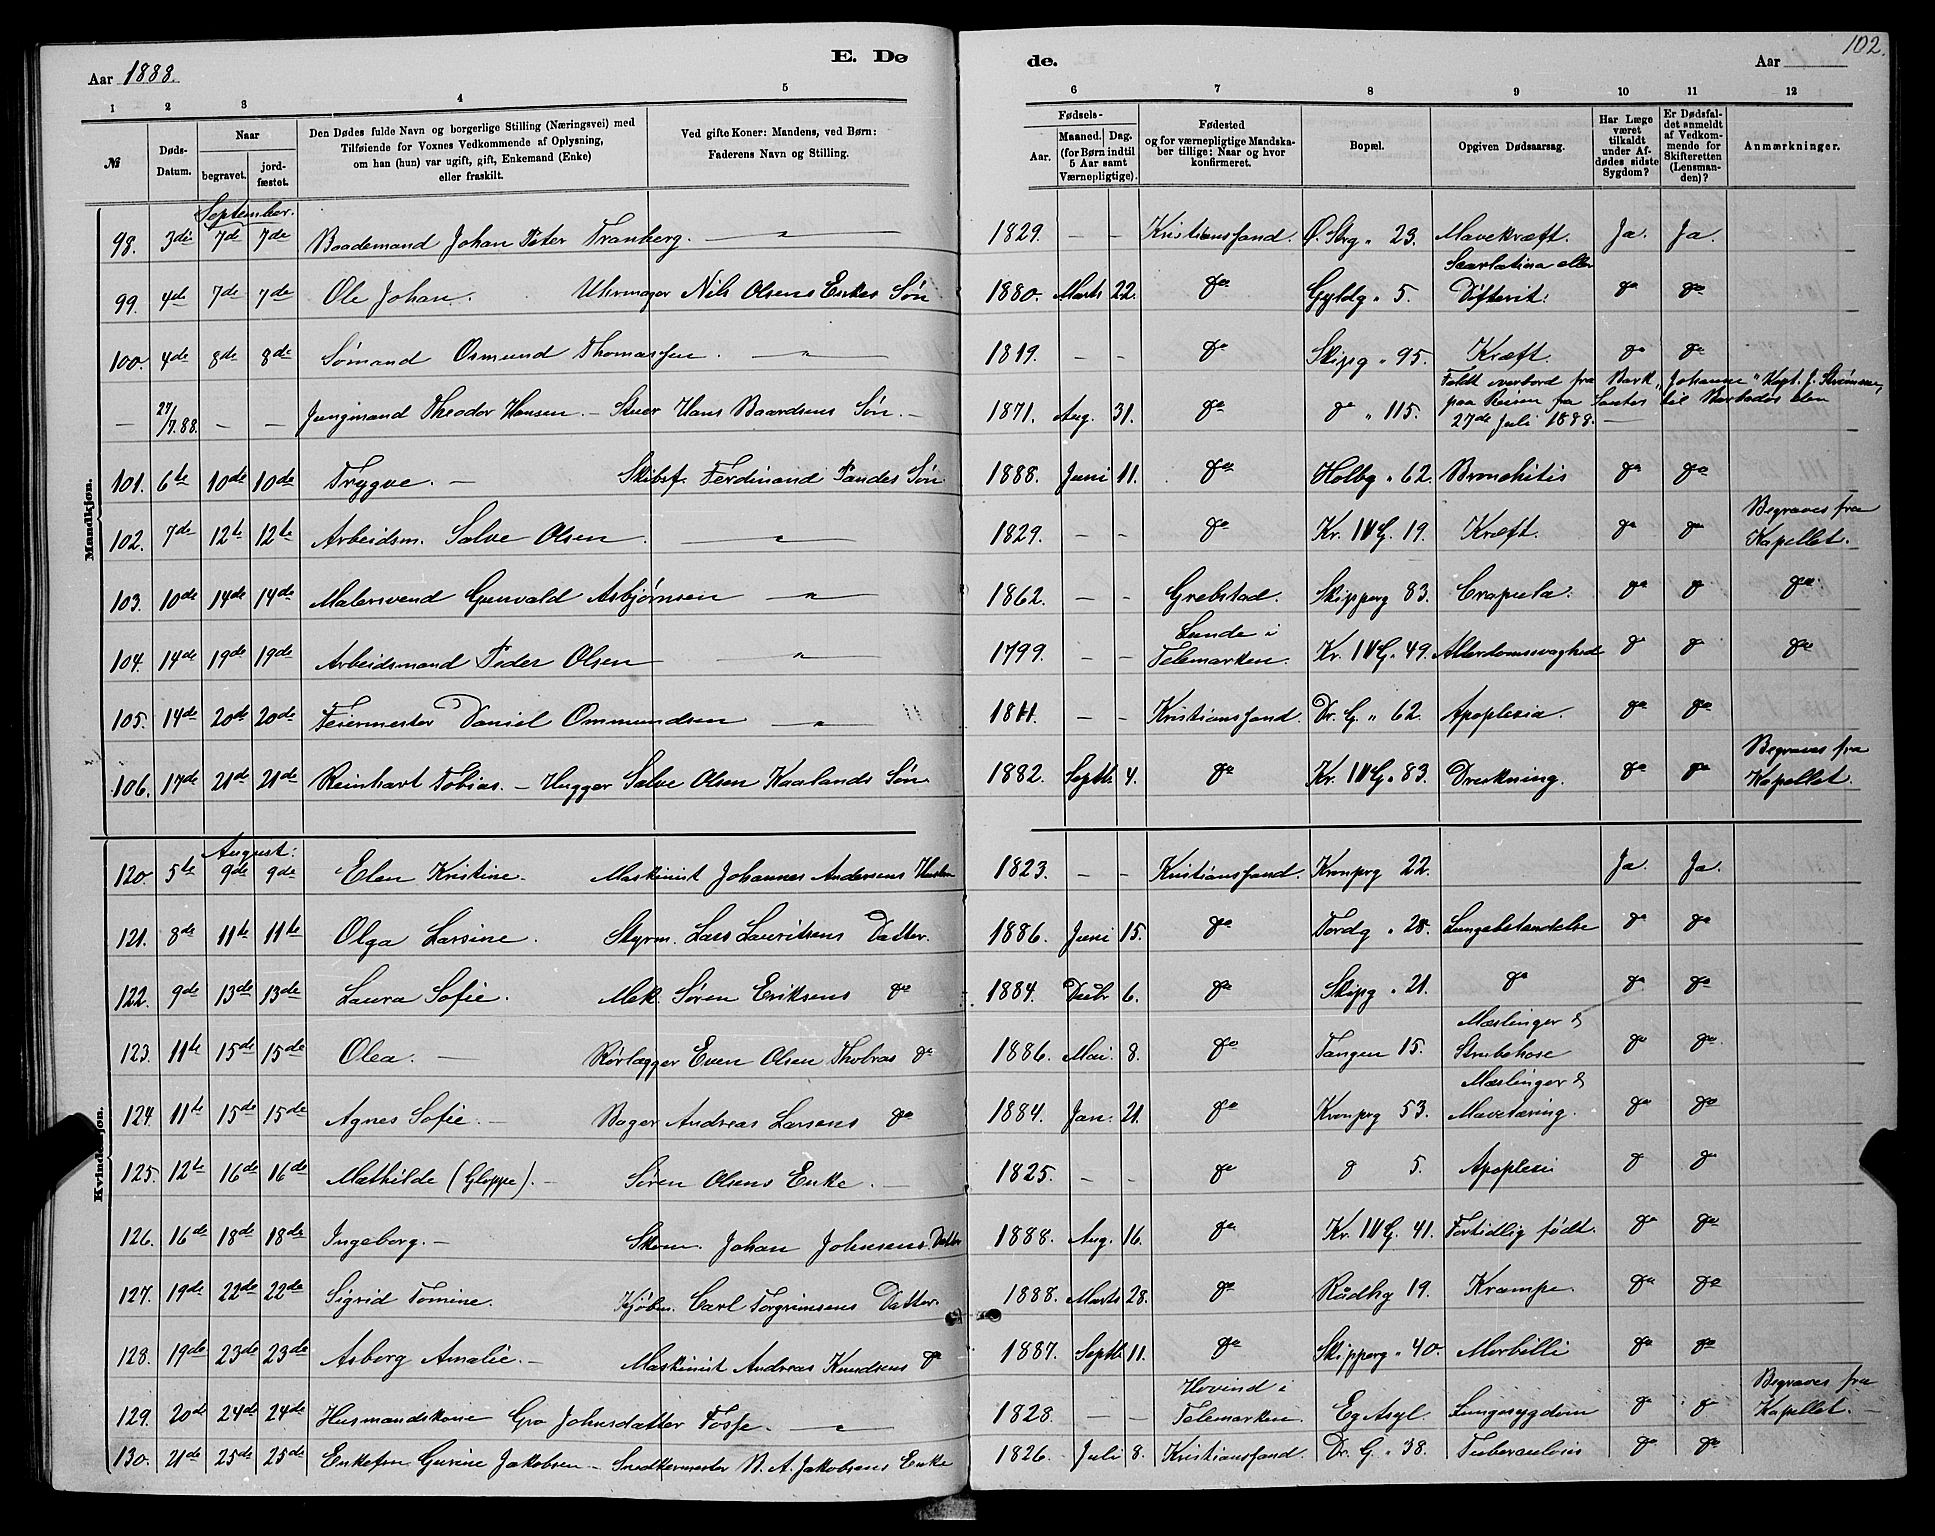 102.
E. Dø de.
Aar 1888. Aar
1 2 3 4 5 6 7 8 9 10 11 12
№
Døds-Datum.
Naar
begravet.
jordfæstet.
Den Dødes fulde Navn og borgerlige Stilling (Næringsvei) med
Tilføiende for Voxnes Vedkommende af Oplysning,
om han (hun) var ugift, gift, Enkemand (Enke)
eller fraskilt.
Ved gifte Koner: Mandens, ved Børn:
Faderens Navn og Stilling.
Fødsels-
Aar.
Maaned. Dag.
(for Børn indtil
5 Aar samt
Værnepligtige).
Fødested
og for værnepligtige Mandska-
ber tillige: Naar og hvor
konfirmeret.
Bopæl.
Opgiven Dødsaarsag.
Har Læge
været
tilkaldt
under Af-
dødes sidste
Sygdom?
Er Dødsfal-
det anmeldt
af Vedkom-
mende for
Skifteretten
(Lensman-
den)?
Anmærkninger.
Mandkjøn.
September.
98. 3die 7de 7de Baademand Johan Peter Tranberg. — " — 1829. – – Kristianssand. Ø. Strg " 23. Mavekræft. Ja. Ja.
99. 4de 7de 7de Ole Johan. Uhrmager Nils Olsens Enkes Søn 1880. Marts 22. do Gyldg " 5. Scarlatina eller Difterit. do do
100. 4de 8de 8de Sømand Osmund Thomassen. — " — 1819. – – do Skipg " 95. Kræft. do do
– 27/7.88. – – Jungmand Theodor Hansen. – Stuer Hans Baardsens Søn. – 1871. Aug. 31. do do " 115. Faldt overbord fra Bark " Johanne " Kapt. J.
paa Reisen fra Santos til Barbados den
27de Juli 1888. —
101. 6te 10de 10de Trygve. – Skibsf. Ferdinand Pandes Søn 1888. Juni 11. do Holbg " 62. Bronchitis do do
102. 7de 12te 12te Arbeidsm. Salve Olsen. — " — 1829. – – do Kr. IV G. 19. Kræft. do do Begraves fra Kapellet.
103. 10de 14de 14de Malersvend Gunvald Asbjørnsen — " — 1862. – – Grebstad. Skipperg 83. Crapula. do do do
104. 14de 19de 19de Arbeidsmand Peder Olsen — " — 1799. – – Lunde i Telemarken. Kr. IV G. 49. Alderdomssvaghed do do do
105. 14de 20de 20de Feiermester Daniel Ommundsen — " — 1811. – – Kristianssand. Dr. G. " 62. Apoplexia. do do
106. 17de 21de 21de Reinhart Tobias. – Hugger Salve Olsen Kaalands Søn 1882. Septb. 4. do Kr. IV G. " 83. Drukning. do do Begraves fra Kapellet.
Kvindekjøn.
August.
120. 5te 9de 9de Elen Kristine. Maskinist Johannes Andersens Hustru 1823. – – Kristianssand. Kronprg 22. Ja. Ja.
121. 8de 11te 11te Olga Larsine. Styrm. Lars Lauritsens Datter. 1886. Juni 15. do Tordg " 28. Lungebetændelse do do
122. 9de 13de 13de Laura Sofie. Mek. Søren Eriksens do 1884. Decbr 6. do Skipg " 21. do do do
123. 11te 15de 15de Olea. — Rørlægger Even Olsen do 1886. Mai. 8. do Tangen 15. Mæslinger & Strubehose do do
124. 11te 15de 15de Agnes Sofie. – Bager Andreas Larsens do 1884. Jan. 21. do Kronprg 53. Mæslinger & Mavetæring. do do
125. 12te 16de 16de Mathilde (Gloppe). – Søren Olsens Enke. – 1825. – – do do 5. Apoplexi do do
126. 16de 18de 18de Ingeborg. – Skom. Johan Johnsens Datter 1888. Aug. 16. do Kr. IV G. 41. Fortidlig født. do do
127. 19de 22de 22de Sigrid Tomine. Kjøbm. Carl Torgrimsens Datter. 1888. Marts 28. do Raadhg 19. Krampe. do do
128. 19de 23de 23de Asborg Amalie. – Maskinist Andreas Knudsens do 1887. Septb 11. do Skipperg " 40. Morbilli do do
129. 20de 24de 24de Husmandskone Gro Johnsdatter Fosse. — " — 1828. – – Hovind i Telemarken. Eg Asyl. Lungesygdom do do Begraves fra Kapellet. –
130. 21de 25de 25de Enkefru Gurine Jakobsen – Snedkermester N. A. Jakobsens Enke 1826. Juli 8. Kristianssand. Dr. G. " 38. Tuberculosis do do